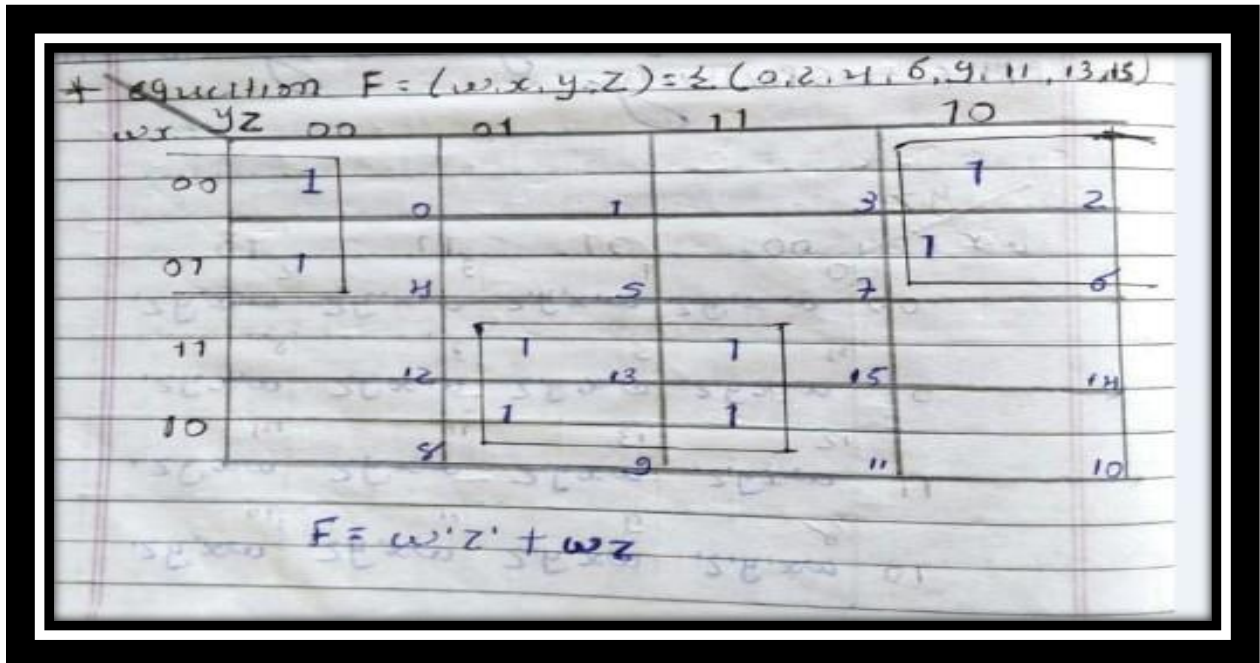 * equation F = (w, x, y, z) = Σ (0, 2, 4, 6, 9, 11, 13, 15)
wx yz 00 01 11 10
00 1 0 1 3 1 2
01 1 4 5 7 1 6
11 12 1 13 1 15 14
10 8 1 9 1 11 10
F = w'z' + wz